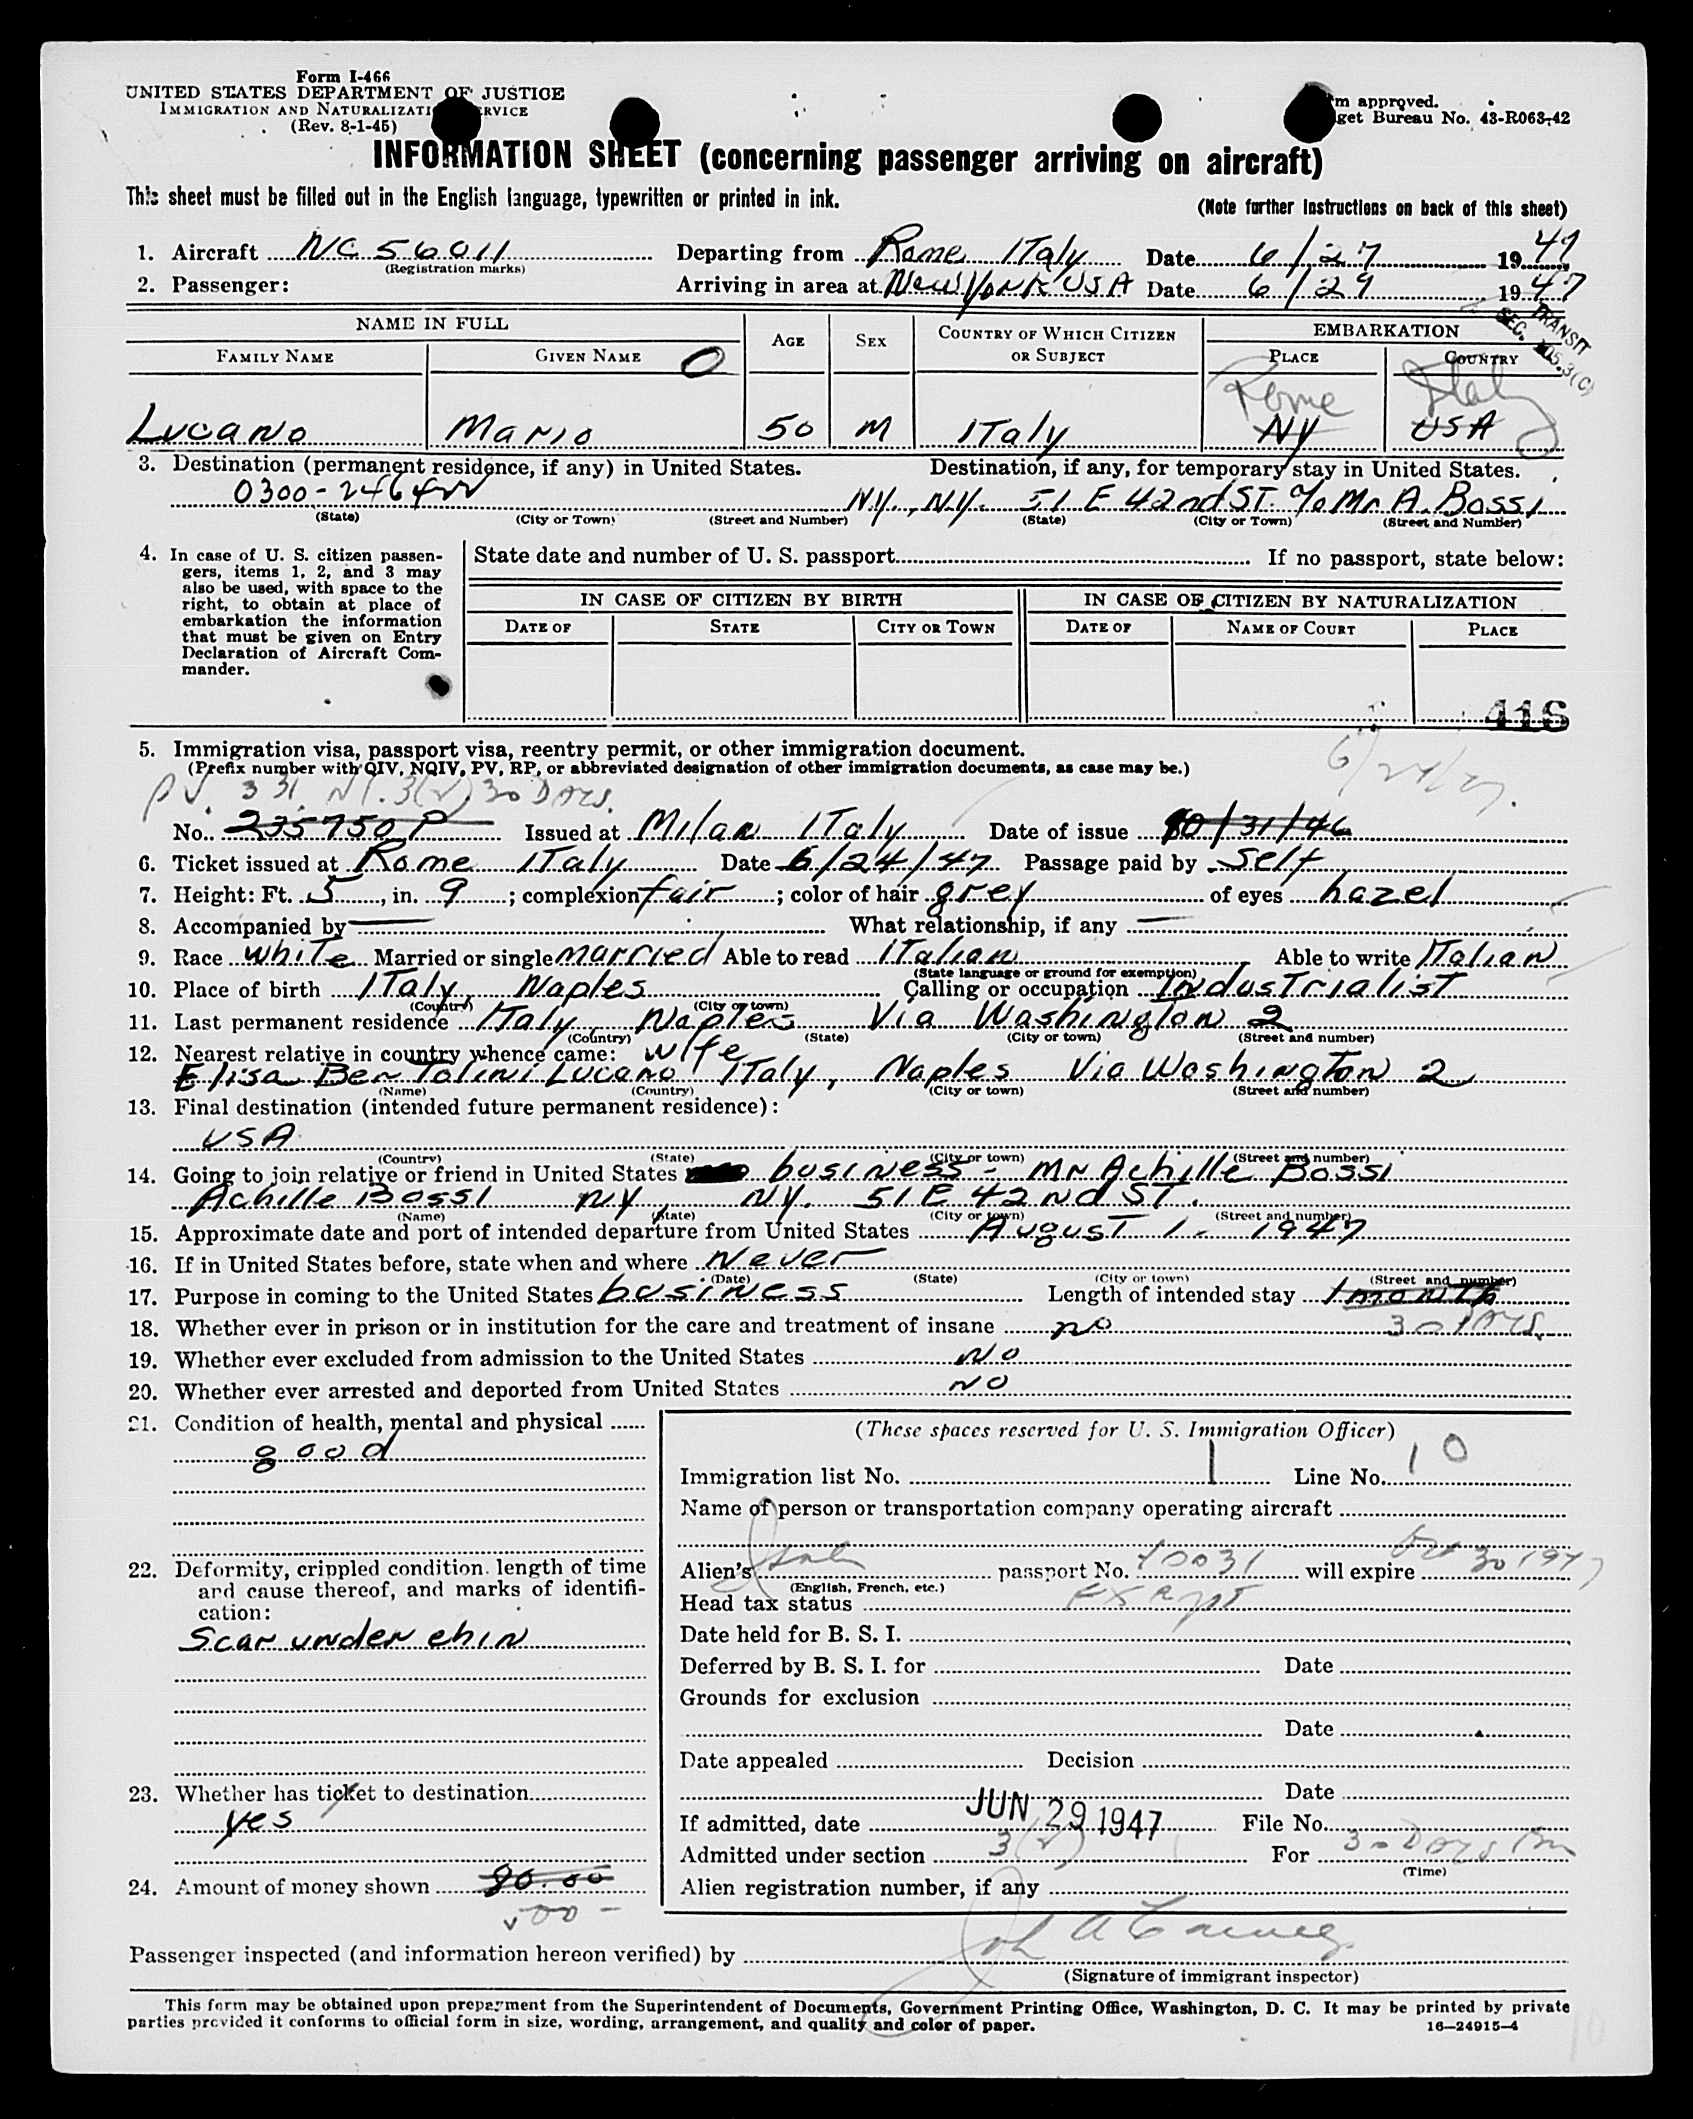 Form I-466
UNITED STATES DEPARTMENT OF JUSTICE
IMMIGRATION AND NATURALIZATION SERVICE
(Rev. 8-1-45)
Form approved.
Budget Bureau No. 43-R063-42
INFORMATION SHEET (concerning passenger arriving on aircraft)
This sheet must be filled out in the English language, typewritten or printed in ink.
(Note further instructions on back of this sheet)
1. Aircraft NC 56011 Departing from Rome ITaly Date 6/27 1947
(Registration marks)
2. Passenger: Arriving in area at New York USA Date 6/29 1947
TRANSIT
SEC. 105.3(C)
NAME IN FULL AGE SEX COUNTRY OF WHICH CITIZEN OR SUBJECT EMBARKATION
FAMILY NAME GIVEN NAME O PLACE COUNTRY
Rome Italy
Lucano Mario 50 M ITaly NY USA
3. Destination (permanent residence, if any) in United States. Destination, if any, for temporary stay in United States.
0300-246 N.Y., N.Y. 51 E 42nd ST. c/o Mr A. Bossi
(State) (City or Town) (Street and Number) (State) (City or Town) (Street and Number)
4. In case of U. S. citizen passengers, items 1, 2, and 3 may also be used, with space to the right, to obtain at place of embarkation the information that must be given on Entry Declaration of Aircraft Commander.
State date and number of U. S. passport If no passport, state below:
IN CASE OF CITIZEN BY BIRTH IN CASE OF CITIZEN BY NATURALIZATION
DATE OF STATE CITY OR TOWN DATE OF NAME OF COURT PLACE
416
5. Immigration visa, passport visa, reentry permit, or other immigration document.
(Prefix number with QIV, NQIV, PV, RP, or abbreviated designation of other immigration documents, as case may be.)
PV. 331 3(2) 30 DAYS. 6/24/47.
No. 235750 P Issued at Milan ITaly Date of issue 10/31/46
6. Ticket issued at Rome ITaly Date 6/24/47 Passage paid by Self
7. Height: Ft. 5, in. 9; complexion fair; color of hair grey of eyes hazel
8. Accompanied by — What relationship, if any —
9. Race white Married or single married Able to read ITalian Able to write ITalian
(State language or ground for exemption)
10. Place of birth ITaly Naples Calling or occupation IndusTrialisT
(Country) (City or town)
11. Last permanent residence ITaly Naples Via Washington 2
(Country) (State) (City or town) (Street and number)
12. Nearest relative in country whence came: wife
Elisa BerTolini Lucano ITaly, Naples Via Washington 2
(Name) (Country) (City or town) (Street and number)
13. Final destination (intended future permanent residence):
USA
(Country) (State) (City or town) (Street and number)
14. Going to join relative or friend in United States business - Mr Achille Bossi
Achille Bossi NY NY. 51 E 42nd ST.
(Name) (State) (City or town) (Street and number)
15. Approximate date and port of intended departure from United States AugusT 1 - 1947
16. If in United States before, state when and where Never
(Date) (State) (City or town) (Street and number)
17. Purpose in coming to the United States business Length of intended stay 1 monTh
18. Whether ever in prison or in institution for the care and treatment of insane no 30 DAYS.
19. Whether ever excluded from admission to the United States NO
20. Whether ever arrested and deported from United States NO
21. Condition of health, mental and physical
good
22. Deformity, crippled condition, length of time and cause thereof, and marks of identification:
Scar under chin
23. Whether has ticket to destination
yes
24. Amount of money shown 80.00
(These spaces reserved for U. S. Immigration Officer)
Immigration list No. 1 Line No. 10
Name of person or transportation company operating aircraft
Alien's Ital passport No. 70031 will expire Oct 30 1947
(English, French, etc.)
Head tax status Exempt
Date held for B. S. I.
Deferred by B. S. I. for Date
Grounds for exclusion
Date
Date appealed Decision
Date
If admitted, date JUN 29 1947 File No.
Admitted under section 3(2) For 30 Days
(Time)
Alien registration number, if any
Passenger inspected (and information hereon verified) by
(Signature of immigrant inspector)
This form may be obtained upon prepayment from the Superintendent of Documents, Government Printing Office, Washington, D. C. It may be printed by private
parties provided it conforms to official form in size, wording, arrangement, and quality and color of paper.
16—24915-4